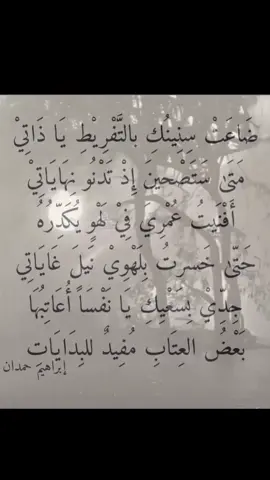 ضَاعَتْ سِنِينُكِ بالتَّفْرِيْطِ يَا ذَاتِيْ
مَتَىٰ سَتَصْحِينَ إِذْ تَدْنُو نِهَايَاتِيْ
أَفْنَيتُ عُمْرِيَ فِيْ لَهْوٍ يُكَدِّرُهُ
حَتَّىٰ خَسِرتُ بِلَهْوِيْ نَيلَ غَايَاتِي
جِدِّيْ بِسَعْيِكِ يَا نَفْسَاً أُعَاتِبُهَا
بَعْضُ العِتَابِ مُفِيدٌ للبِدَايَاتِ
إبراهيم حمدان